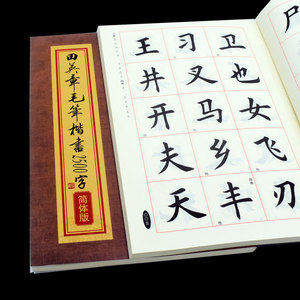 田英章毛笔楷书2500字
简体版
王习卫
井又也
开马女
夫乡飞
天丰刃
尸